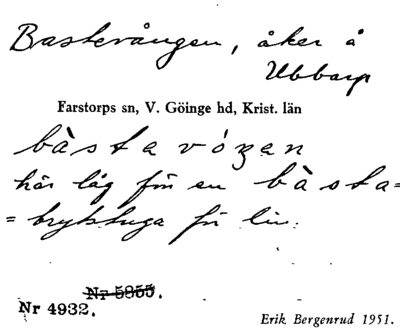 Bastevången, åker å
Ubbarp
Farstorps sn, V. Göinge hd, Krist. län
bàstavóꝫan
här låg för en bàsta=
=brytstuga för lin.
Nr 5855.
Nr 4932.
Erik Bergenrud 1951.